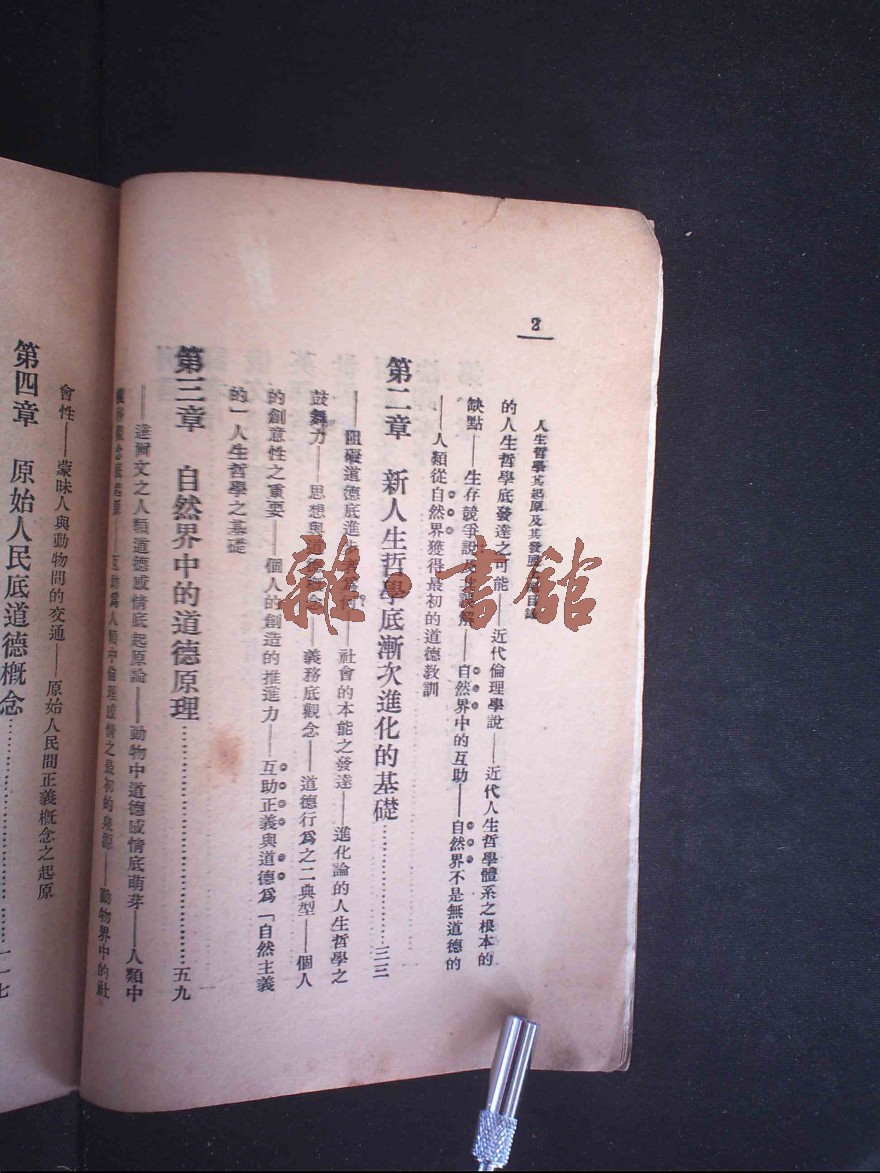 2
人生哲學其起原及其發展
目錄
的人生哲學底發達之可能——近代倫理學說——近代人生哲學體系之根本的
缺點——生存競爭說
解——自然界中的互助——自然界不是無道德的
——人類從自然界獲得最初的道德教訓
第二章 新人生哲學底漸次進化的基礎……三三
——阻礙道德底進步
——社會的本能之發達——進化論的人生哲學之
鼓舞力——思想與
——義務底觀念——道德行爲之二典型——個人
的創意性之重要——個人的創造的推進力——互助正義與道德爲「自然主義
的」人生哲學之基礎
第三章 自然界中的道德原理……五九
——達爾文之人類道德感情底起原論——動物中道德感情底萌芽——人類中
義務觀念底起原——互助爲人類中倫理感情之最初的泉源——動物界中的社
會性——蒙昧人與動物間的交通——原始人民間正義概念之起原
第四章 原始人民底道德概念……一一七
雜·書館